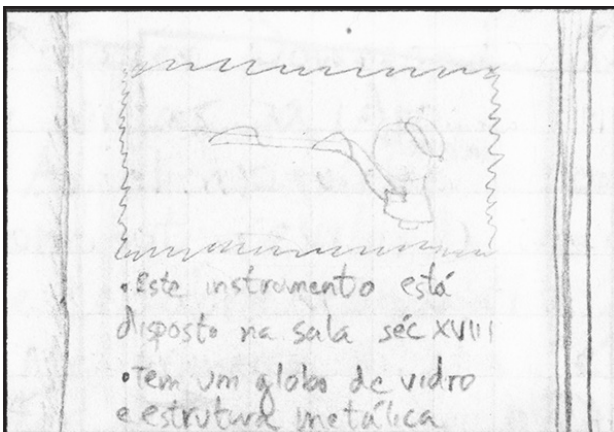 • Este instrumento está
disposto na sala séc XVIII
• tem um globo de vidro
e estrutura metálica